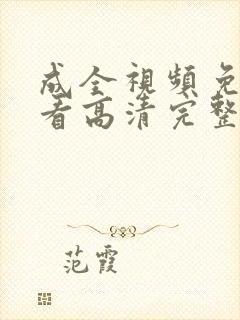 成全視頻免
看高清完整
范霞